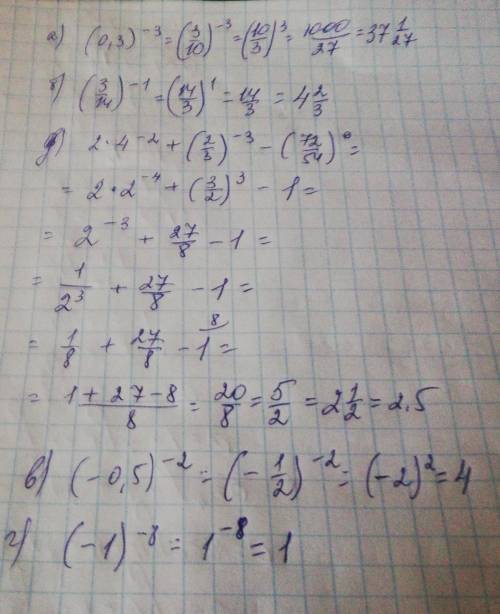 а) (0,3)⁻³ = (3/10)⁻³ = (10/3)³ = 1000/27 = 37 1/27
б) (3/14)⁻¹ = (14/3)¹ = 14/3 = 4 2/3
д) 2·4⁻² + (2/3)⁻³ − (72/54)⁰ =
= 2·2⁻⁴ + (3/2)³ − 1 =
= 2⁻³ + 27/8 − 1 =
= 1/2³ + 27/8 − 1 =
= 1/8 + 27/8 − 1 ⁸ =
= (1+27−8)/8 = 20/8 = 5/2 = 2 1/2 = 2,5
в) (−0,5)⁻² = (−1/2)⁻² = (−2)² = 4
г) (−1)⁻⁸ = 1⁻⁸ = 1